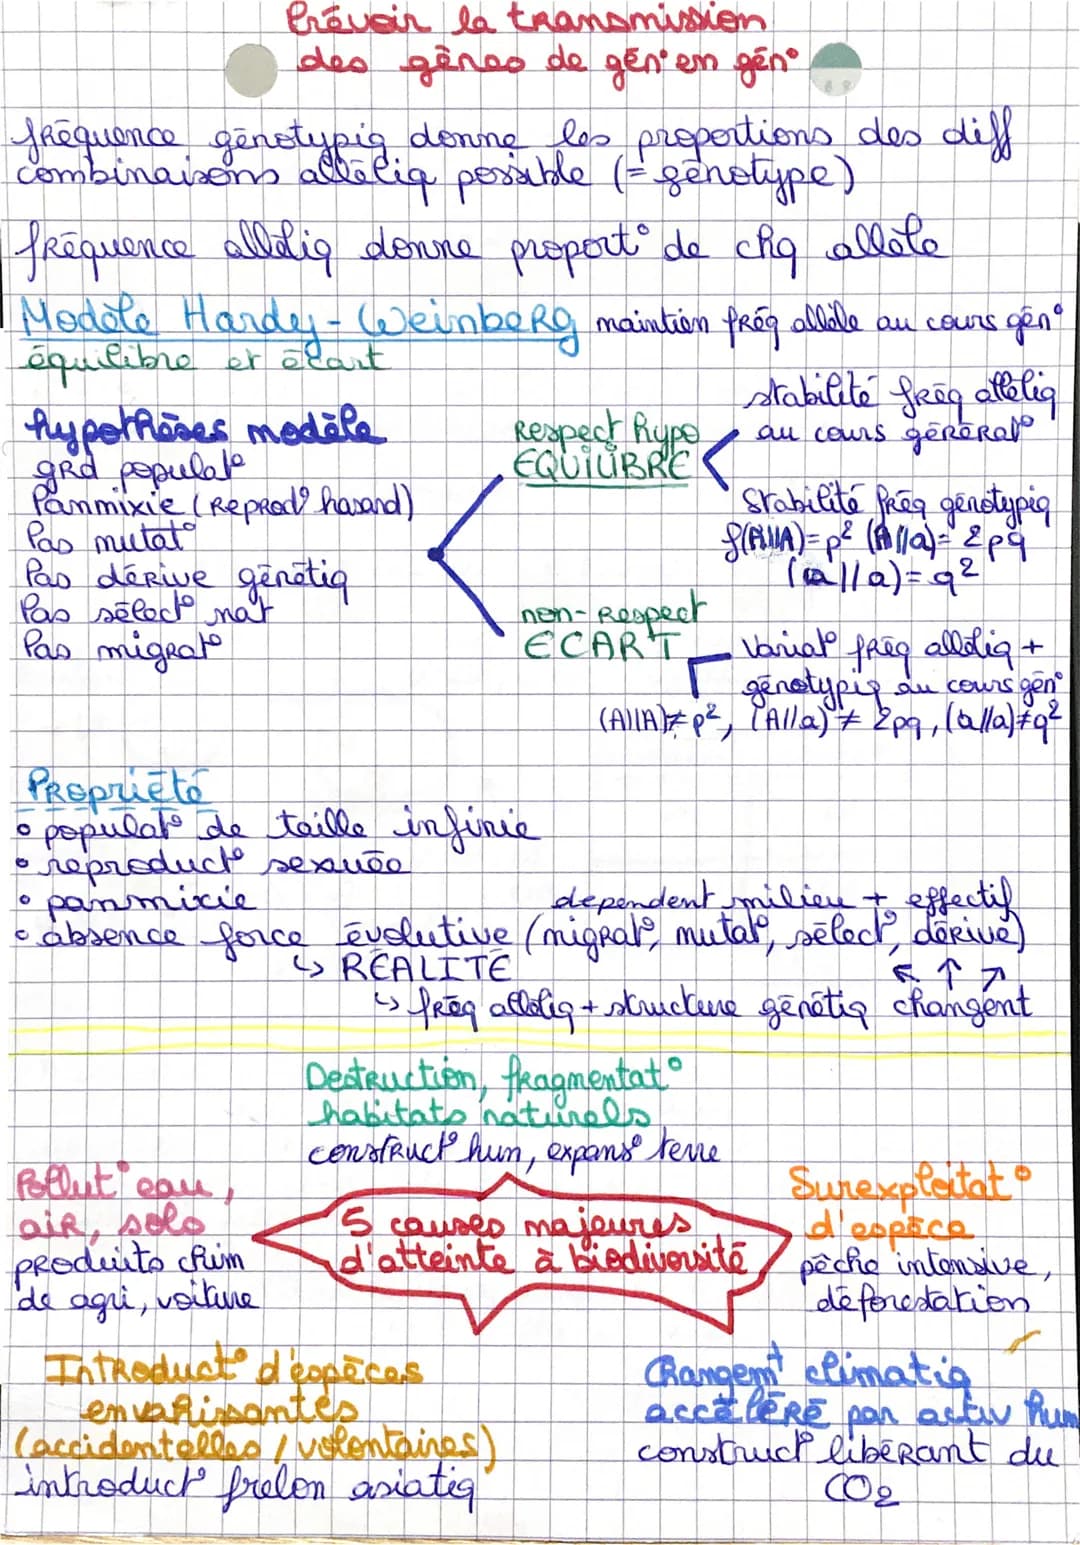 Prévoir la transmission
des gènes de gén° en gén°
fréquence génotypiq donne les proportions des diff
combinaisons alléliq possible (= génotype)
fréquence alléliq donne proport° de chq allèle
Modèle Hardy-Weinberg maintien fréq allèle au cours gén°
équilibre et écart
hypothèses modèle
grd populat°
Panmixie (Reprod° hasard)
Pas mutat°
Pas dérive génétiq
Pas sélect° nat
Pas migrat°
Respect hypo
EQUILIBRE
stabilité fréq alléliq
au cours générat°
Stabilité fréq génotypiq
f(A//A)=p² (A//a)= 2pq
(a//a)=q²
non-respect
ECART
Variat° fréq alléliq +
génotypiq au cours gén°
(A//A)≠p², (A//a) ≠ 2pq, (a//a)≠q²
Propriété
• populat° de taille infinie
• reproduct° sexuée
• panmixie
dependent milieu + effectif
• absence force évolutive (migrat°, mutat°, sélect°, dérive)
↳ RÉALITÉ
↖ ↑ ↗
↳ fréq alléliq + structure génétiq changent
Destruction, fragmentat°
habitats naturels
construct° hum, expans° terre
Pollut° eau,
air, sols
produits chim
de agri, voiture
5 causes majeures
d'atteinte à biodiversité
Surexploitat°
d'espèce
pêche intensive,
déforestation
Introduct° d'espèces
envahissantes
(accidentelles / volontaires)
introduct° frelon asiatiq
Changemt climatiq
accéléré par activ hum
construct° libérant du
CO2